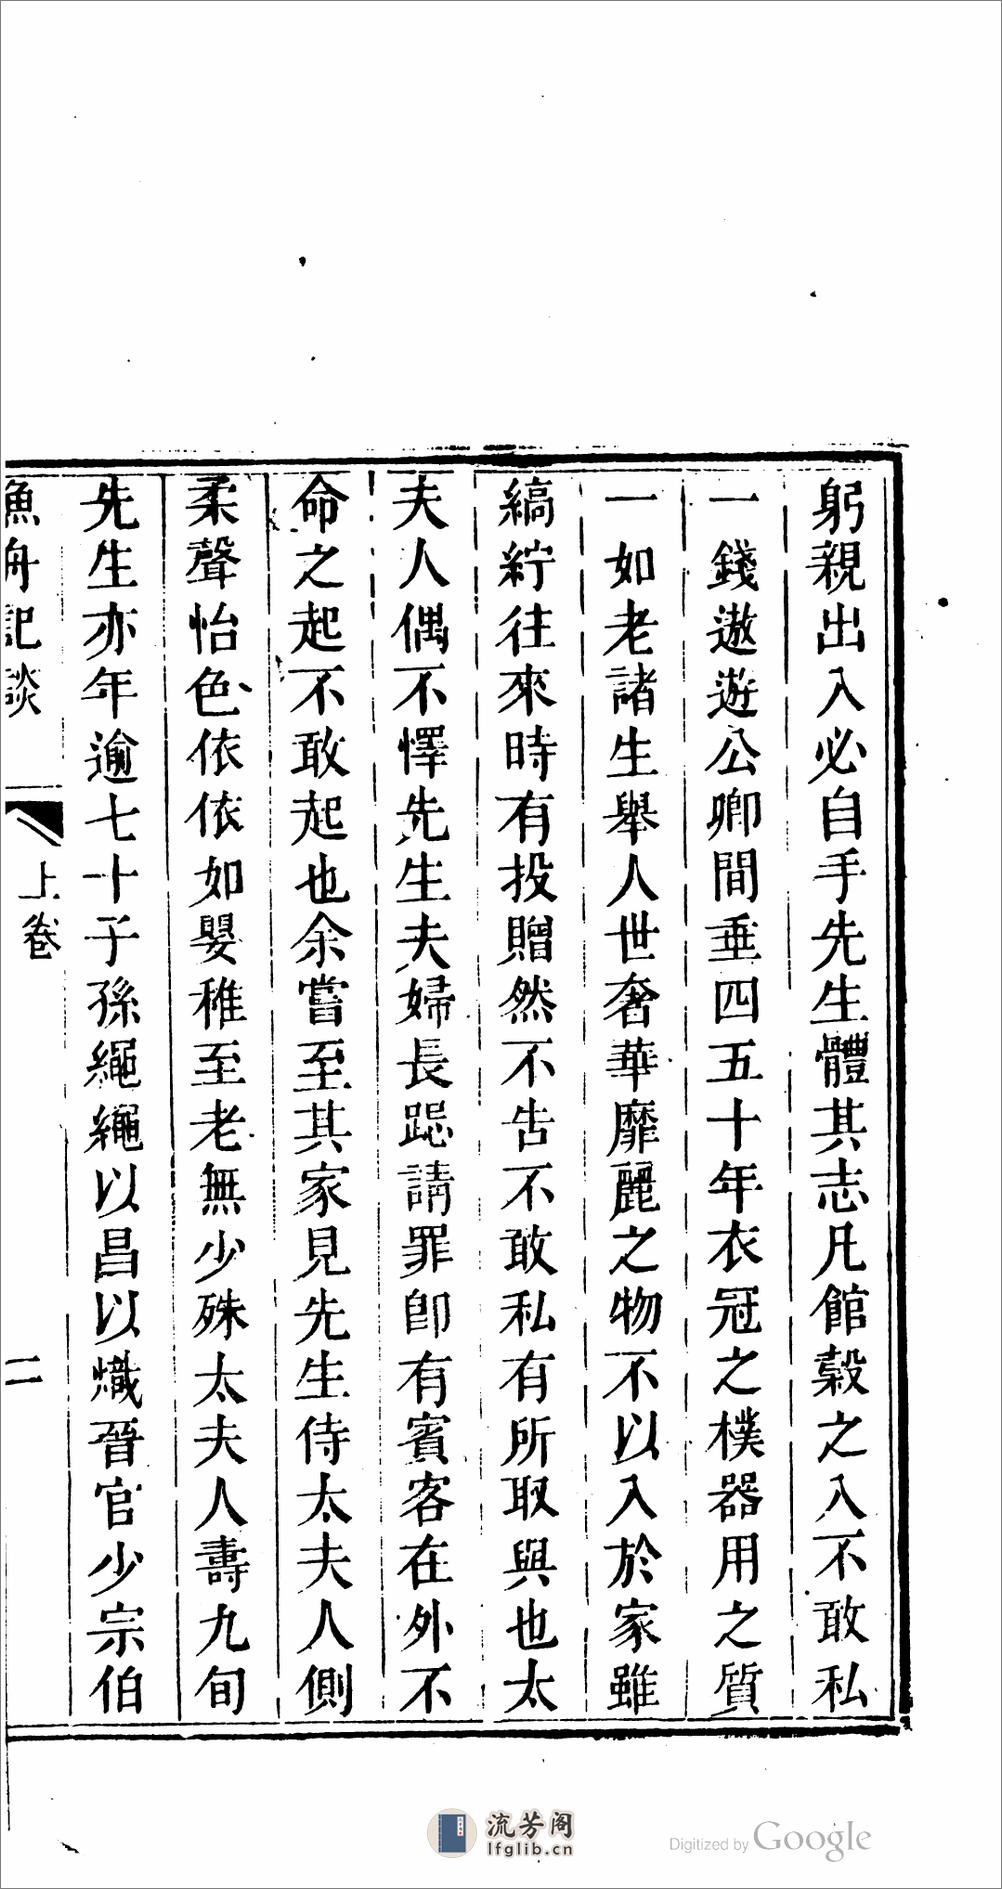 躬親出入必自手先生體其志凡館穀之入不敢私
一錢遨遊公卿間垂四五十年衣冠之樸器用之質
一如老諸生舉人世奢華靡麗之物不以入於家雖
縞紵往來時有投贈然不告不敢私有所取與也太
夫人偶不懌先生夫婦長跽請罪卽有賓客在外不
命之起不敢起也余嘗至其家見先生侍太夫人側
柔聲怡色依依如嬰稚至老無少殊太夫人壽九旬
先生亦年逾七十子孫繩繩以昌以熾晉官少宗伯
漁舟記談
上卷
二
流芳阁
lfglib.cn
Digitized by Google